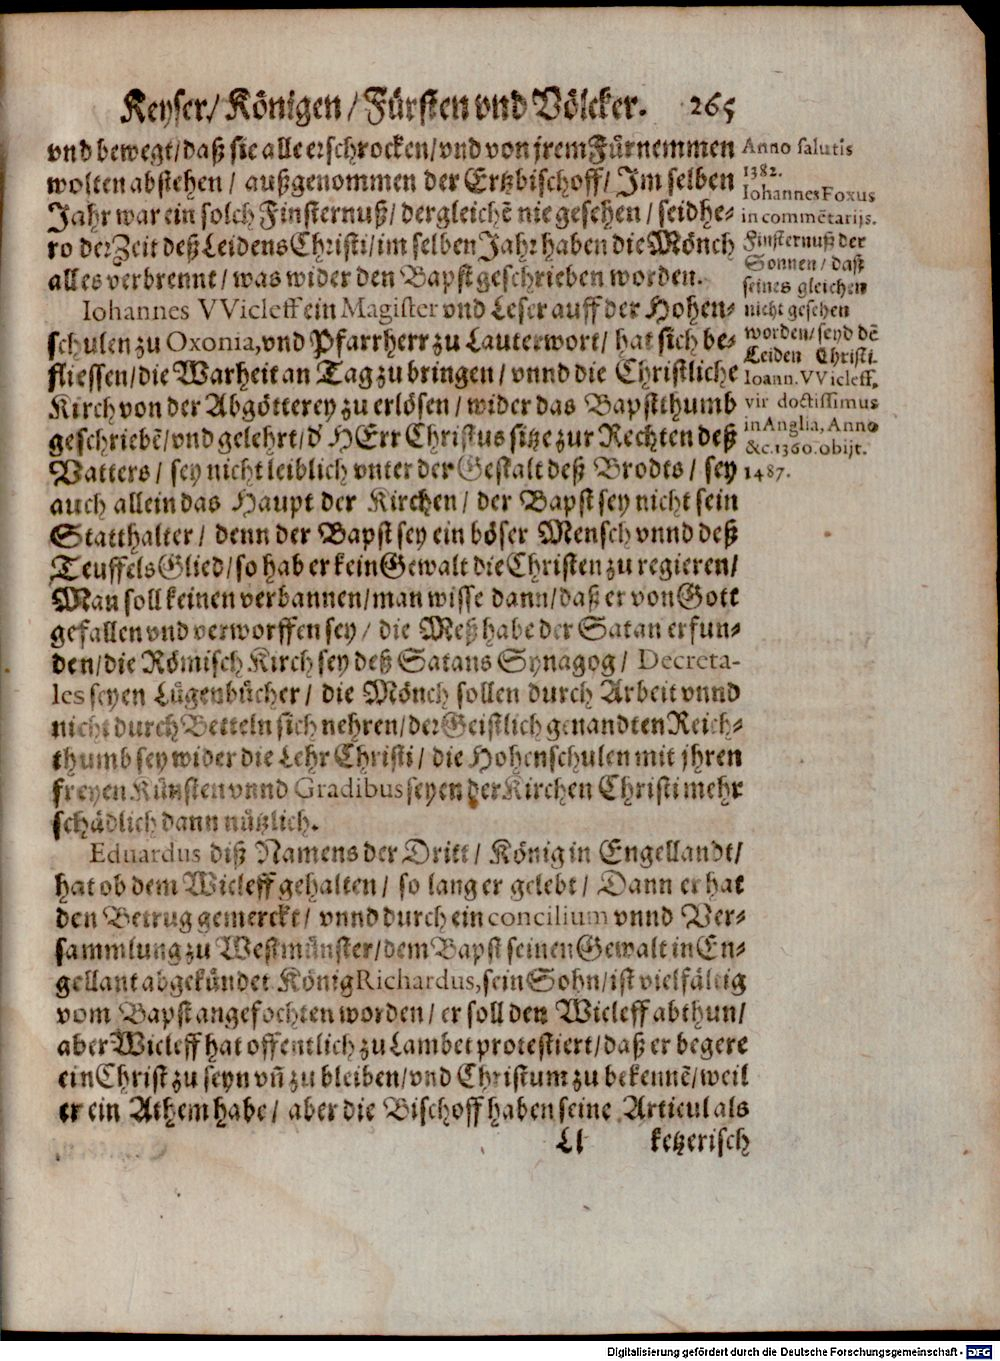 Keyser/ Königen/ Fürsten vnd Völcker. 265
vnd bewegt/ daß sie alle erschrocken/ vnd von jrem Fürnemmen
wolten abstehen/ außgenommen der Ertzbischoff/ Im selben
Jahr war ein solch Finsternuß/ dergleichẽ nie gesehen/ seidhe-
ro der Zeit deß Leidens Christi/ im selben Jahr haben die Mönch
alles verbrennt/ was wider den Bapst geschrieben worden.
Iohannes VVicleff ein Magister vnd Leser auff der Hohen-
schulen zu Oxonia, vnd Pfarrherr zu Lauterwort/ hat sich be-
fliessen/ die Warheit an Tag zu bringen/ vnnd die Christliche
Kirch von der Abgötterey zu erlösen/ wider das Bapstthumb
geschriebẽ/ vnd gelehrt/ d' HErr Christus sitze zur Rechten deß
Vatters/ sey nicht leiblich vnter der Gestalt deß Brodts/ sey
auch allein das Haupt der Kirchen/ der Bapst sey nicht sein
Statthalter/ denn der Bapst sey ein böser Mensch vnnd deß
Teuffels Glied/ so hab er kein Gewalt die Christen zu regieren/
Man soll keinen verbannen/ man wisse dann/ daß er von Gott
gefallen vnd verworffen sey/ die Meß habe der Satan erfun-
den/ die Römisch Kirch sey deß Satans Synagog/ Decreta-
les seyen Lügenbücher/ die Mönch sollen durch Arbeit vnnd
nicht durch Betteln sich nehren/ der Geistlich genandten Reich-
thumb sey wider die Lehr Christi/ die Hohenschulen mit jhren
freyen Künsten vnnd Gradibus seyen der Kirchen Christi mehr
schädlich dann nützlich.
Eduardus diß Namens der Dritt/ König in Engellandt/
hat ob dem Wicleff gehalten/ so lang er gelebt/ Dann er hat
den Betrug gemerckt/ vnnd durch ein concilium vnnd Ver-
sammlung zu Westmünster/ dem Bapst seinen Gewalt in En-
gellant abgekündet König Richardus, sein Sohn/ ist vielfältig
vom Bapst angefochten worden/ er soll den Wicleff abthun/
aber Wicleff hat offentlich zu Lambet protestiert/ daß er begere
ein Christ zu seyn vñ zu bleiben/ vnd Christum zu bekennẽ/ weil
er ein Athem habe/ aber die Bischoff haben seine Articul als
Ll ketzerisch
Anno salutis
1382.
Iohannes Foxus
in commẽtarijs.
Finsternuß der
Sonnen/ daß
seines gleichen
nicht gesehen
worden/ seyd dẽ
Leiden Christi.
Ioann. VVicleff,
vir doctissimus
in Anglia, Anno
&c. 1360. obijt.
1487.
Digitalisierung gefördert durch die Deutsche Forschungsgemeinschaft - DFG